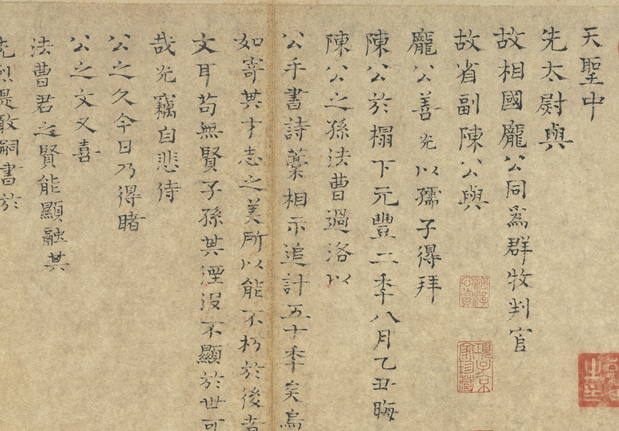 天聖中
先太尉與
故相國龐公同爲群牧判官
故省副陳公與
龐公善光以孺子得拜
陳公於榻下元豐二季八月乙丑晦
陳公之孫法曹過洛以
公手書詩藁相示追計五十季矣烏
如寄其才志之美所以能不朽於後者
文耳苟無賢子孫其湮沒不顯於世可
哉光竊自悲侍
公之久今日乃得睹
公之文又喜
法曹君之賢能顯融其
先烈是敢嗣書於